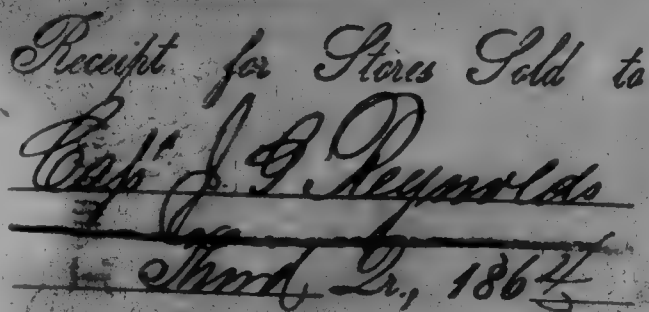 Receipt for Stores Sold to
Capt J. G. Reynolds
Third Qr., 1864